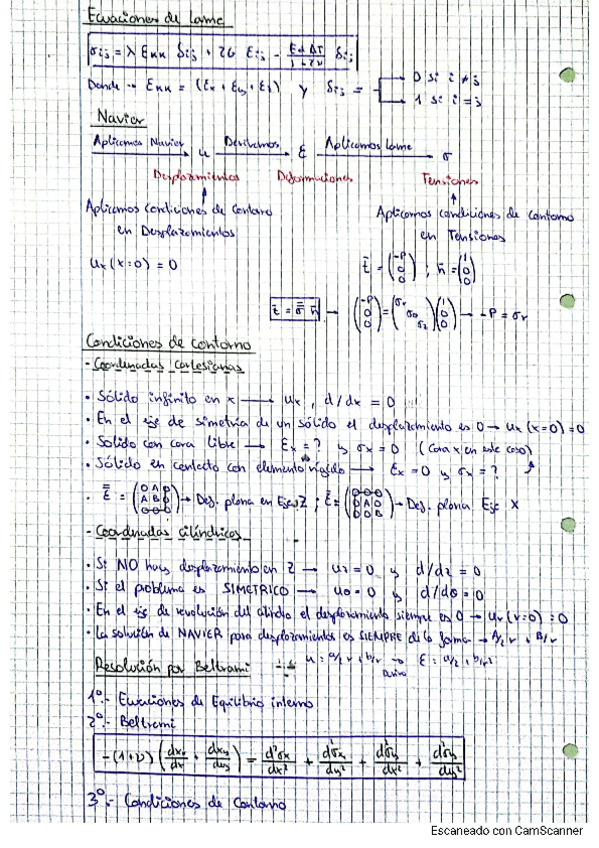 Ecuaciones de Lame
σij = λ Ekk δij + 2G Eij - EαΔT/1-2ν δij
Donde → Ekk = (Ex + Ey + Ez) y δij = 0 si i ≠ j
1 si i = j
Navier
Aplicamos Navier → u Derivamos → E Aplicamos Lame → σ
Desplazamientos Deformaciones Tensiones
Aplicamos condiciones de contorno
en Desplazamientos
ux (x=0) = 0
Aplicamos condiciones de contorno
en Tensiones
t̄ = (-P 0 0) ; n̄ = (1 0 0)
t̄ = σ̿ n̄ → (-P 0 0) = (σr σθ σz)(1 0 0) → -P = σr
Condiciones de contorno
- Coordenadas cartesianas
· Sólido infinito en x → ux , d/dx = 0
· En el eje de simetria de un sólido el desplazamiento es 0 → ux (x=0) = 0
· Solido con cara libre → Ex = ? y σx = 0 (Cara x en este caso)
· Sólido en contacto con elemento rígido → Ex = 0 y σx = ?
· E̿ = (0 A 0 A B 0 0 0 0) → Def. plana en Eje Z ; E̿ = (0 0 0 0 A 0 0 0 B) → Def. plana Eje X
- Coordenadas Cilíndricas
· Si NO hay desplazamiento en Z → uz = 0 y d/dz = 0
· Si el problema es SIMETRICO → uθ = 0 y d/dθ = 0
· En el eje de revolución del cilindro el desplazamiento siempre es 0 → ur (r=0) = 0
· La solución de NAVIER para desplazamientos es SIEMPRE de la forma → A/2 r + B/r
Resolución por Beltrami
u = a/2 r + b/r → E = a/2 + b/r²
1º.- Ecuaciones de Equilibrio interno
2º.- Beltrami
-(1+ν) (dXx/dx + dXy/dy) = d²σx/dx² + d²σx/dy² + d²σy/dx² + d²σy/dy²
3º.- Condiciones de Contorno
Escaneado con CamScanner